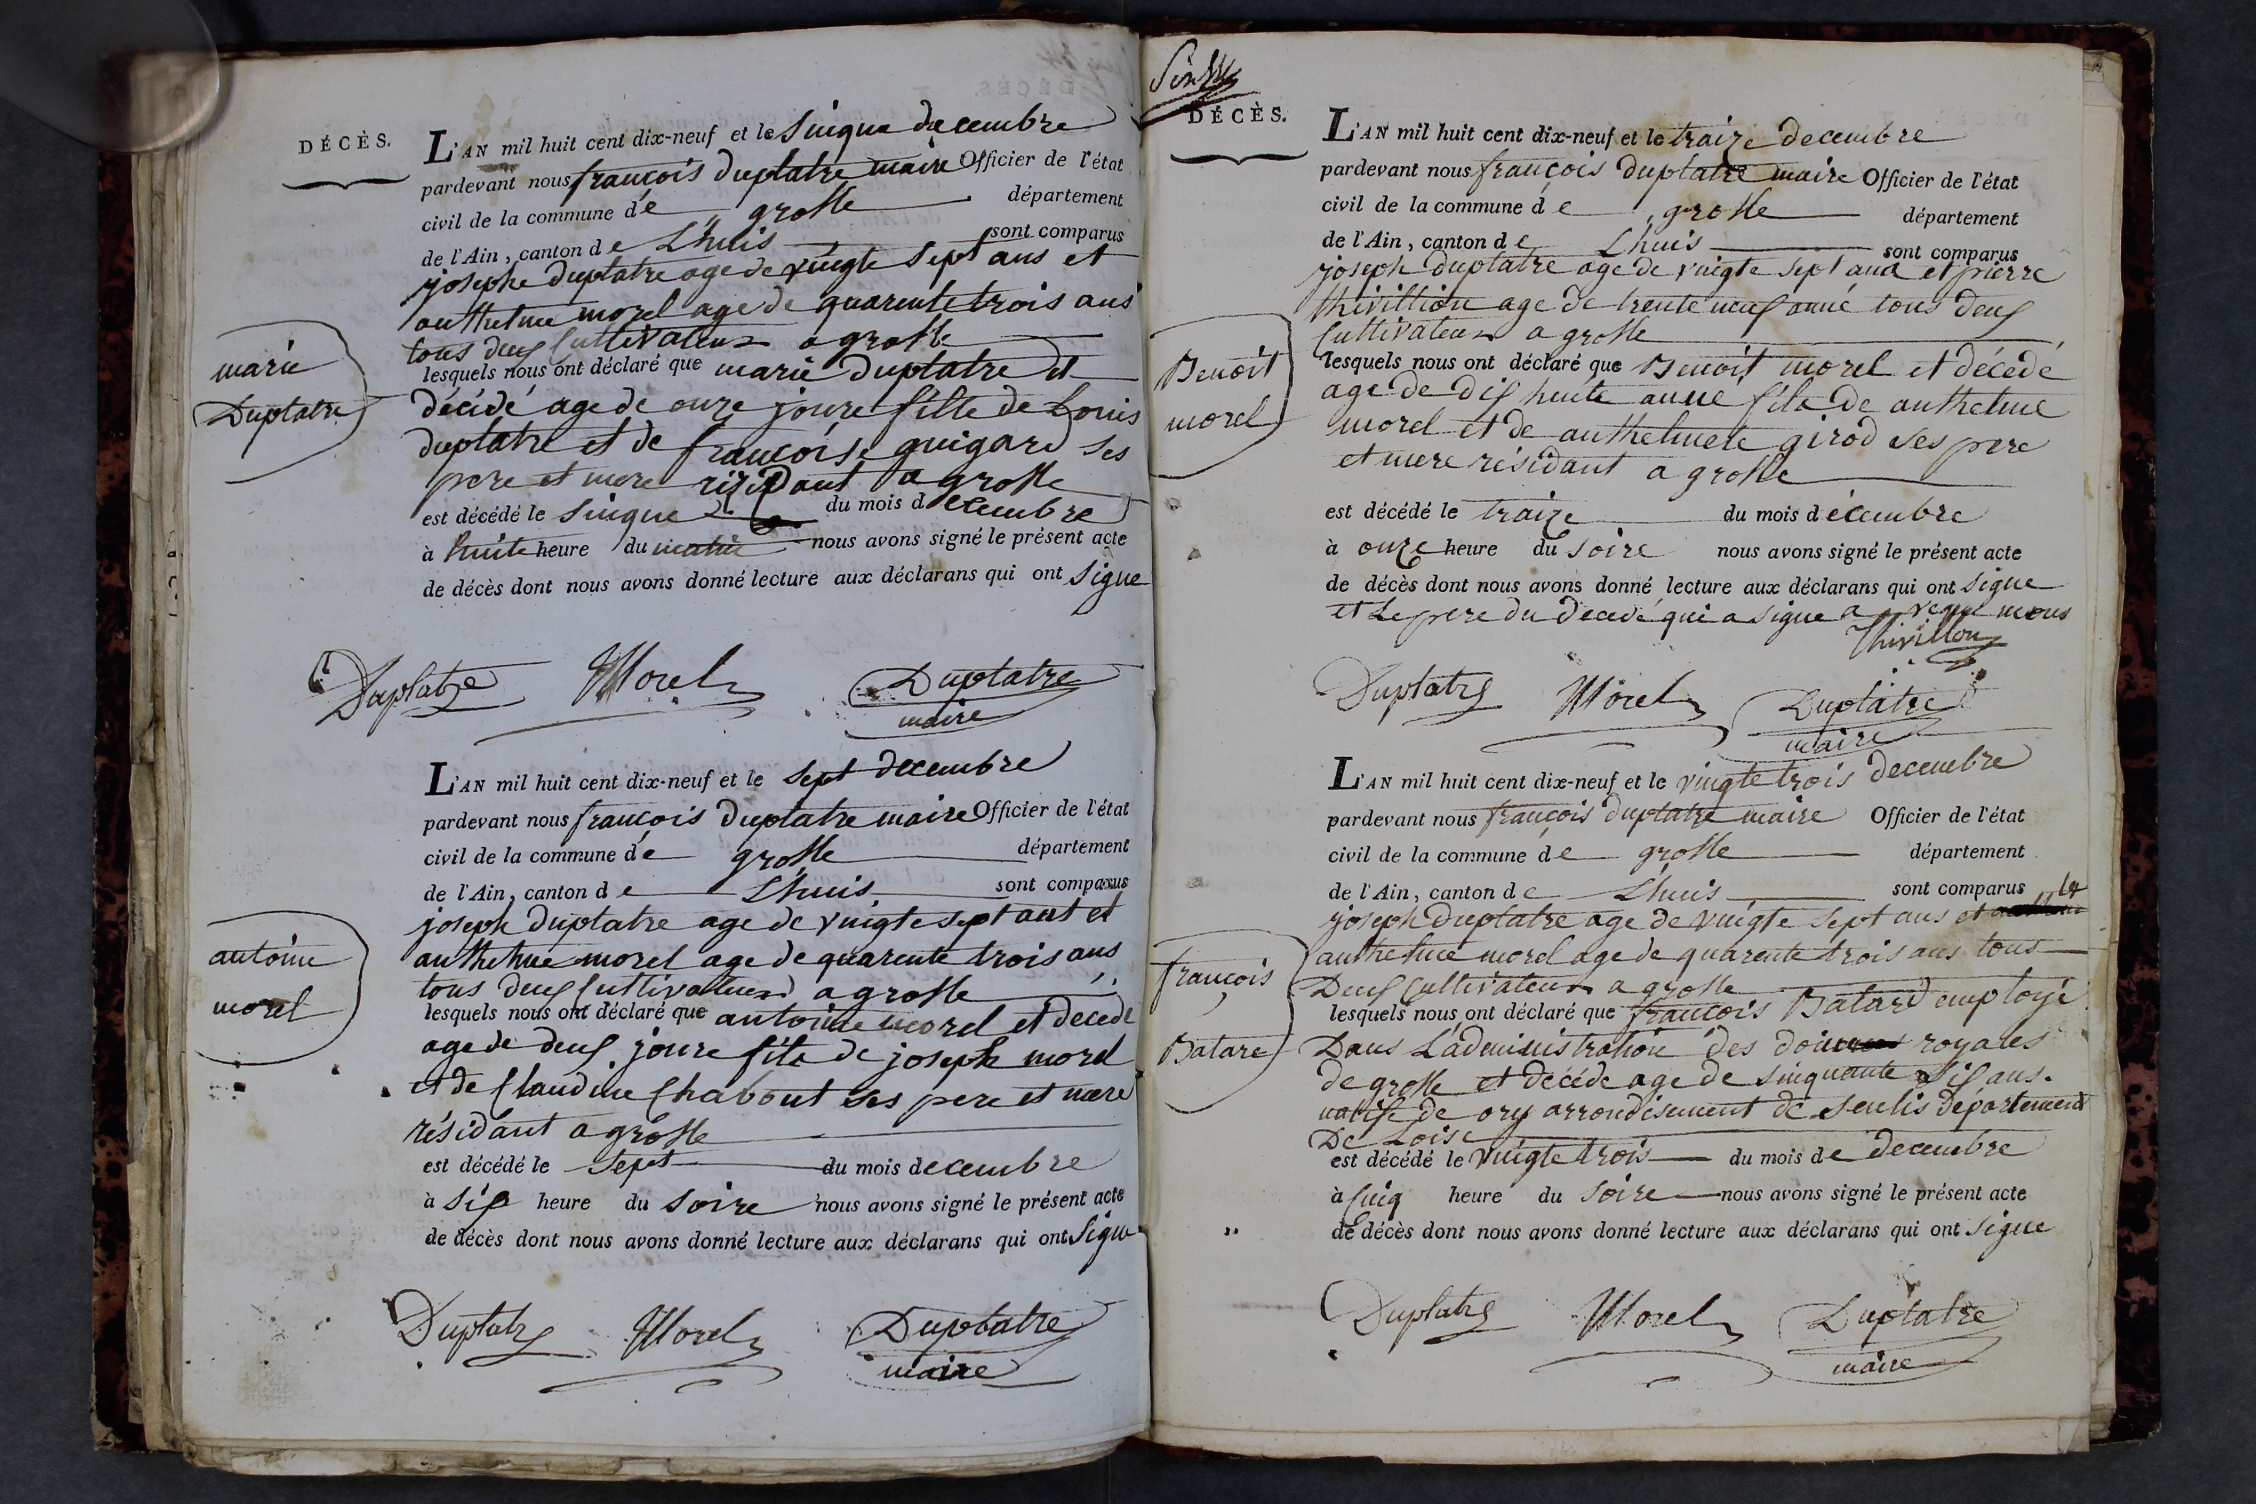 DÉCÈS.
L'AN mil huit cent dix-neuf et le Sinque decembre
pardevant nous françois duplatre maire Officier de l'état
civil de la commune de groslle département
de l'Ain, canton de Lhuis sont comparus
josephe duplatre age de vingte sept ans et
anthelme morel age de quarente trois ans
tous deux Cultivateur a groslle
lesquels nous ont déclaré que marie duplatre et
décidé age de onze joure fille de Louis
duplatre et de françoise guigard ses
pere et mere résidant a groslle
est décédé le sinque du mois decembre
à huite heure du matin nous avons signé le présent acte
de décès dont nous avons donné lecture aux déclarans qui ont signe
marie
Duplatre
Duplatre Morel Duplatre
maire
L'AN mil huit cent dix-neuf et le sept decembre
pardevant nous françois duplatre maire Officier de l'état
civil de la commune de groslle département
de l'Ain, canton de Lhuis sont comparus
joseph duplatre age de vingte sept ant et
anthelme morel age de quarente trois ans
tous deux Cultivateur a groslle
lesquels nous ont déclaré que antoine morel et decede
age de deux joure fils de joseph morel
et de Claudine Chabout ses pere et mere
résidant a groslle
est décédé le sept du mois decembre
à six heure du soire nous avons signé le présent acte
de décès dont nous avons donné lecture aux déclarans qui ont signe
antoine
morel
Duplatre Morel Duplatre
maire
DÉCÈS.
L'AN mil huit cent dix-neuf et le traize decembre
pardevant nous françois duplatre maire Officier de l'état
civil de la commune de groslle département
de l'Ain, canton de Lhuis sont comparus
joseph duplatre age de vingte sept ans et pierre
thivillion age de trente neuf anné tous deux
Cultivateur a groslle
lesquels nous ont déclaré que Benoit morel et décédé
age de dix huite anné fils de anthelme
morel et de anthelmete girod ses pere
et mere résidant a groslle
est décédé le traize du mois décembre
à onze heure du soire nous avons signé le présent acte
de décès dont nous avons donné lecture aux déclarans qui ont signe
et le pere du decedé qui a signe a veque nous
Benoit
morel
Thivillon
Duplatre Morel Duplatre
maire
L'AN mil huit cent dix-neuf et le vingte trois decembre
pardevant nous françois duplatre maire Officier de l'état
civil de la commune de groslle département
de l'Ain, canton de Lhuis sont comparus
joseph duplatre age de vingte sept ans et
anthelme morel age de quarente trois ans tous
Deux Cultivateur a groslle
lesquels nous ont déclaré que françois Batard employé
Dans L'administration des royales
de groslle et décédé age de sinquante six ans.
natif de ory arrondisement de senlis departement
De Loise
est décédé le vingte trois du mois de decembre
à Cinq heure du soire nous avons signé le présent acte
de décès dont nous avons donné lecture aux déclarans qui ont signe
françois
Batard
Duplatre Morel Duplatre
maire